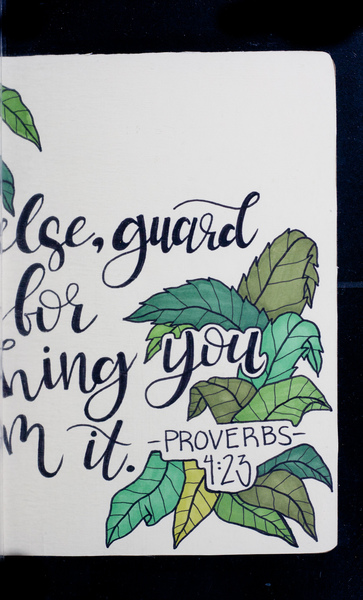 else, guard
for
you
it.
-PROVERBS-
4:23